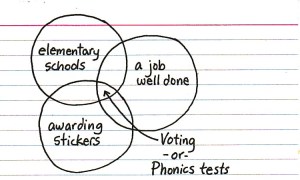 elementary
schools
a job
well done
awarding
stickers
Voting
-or-
Phonics tests